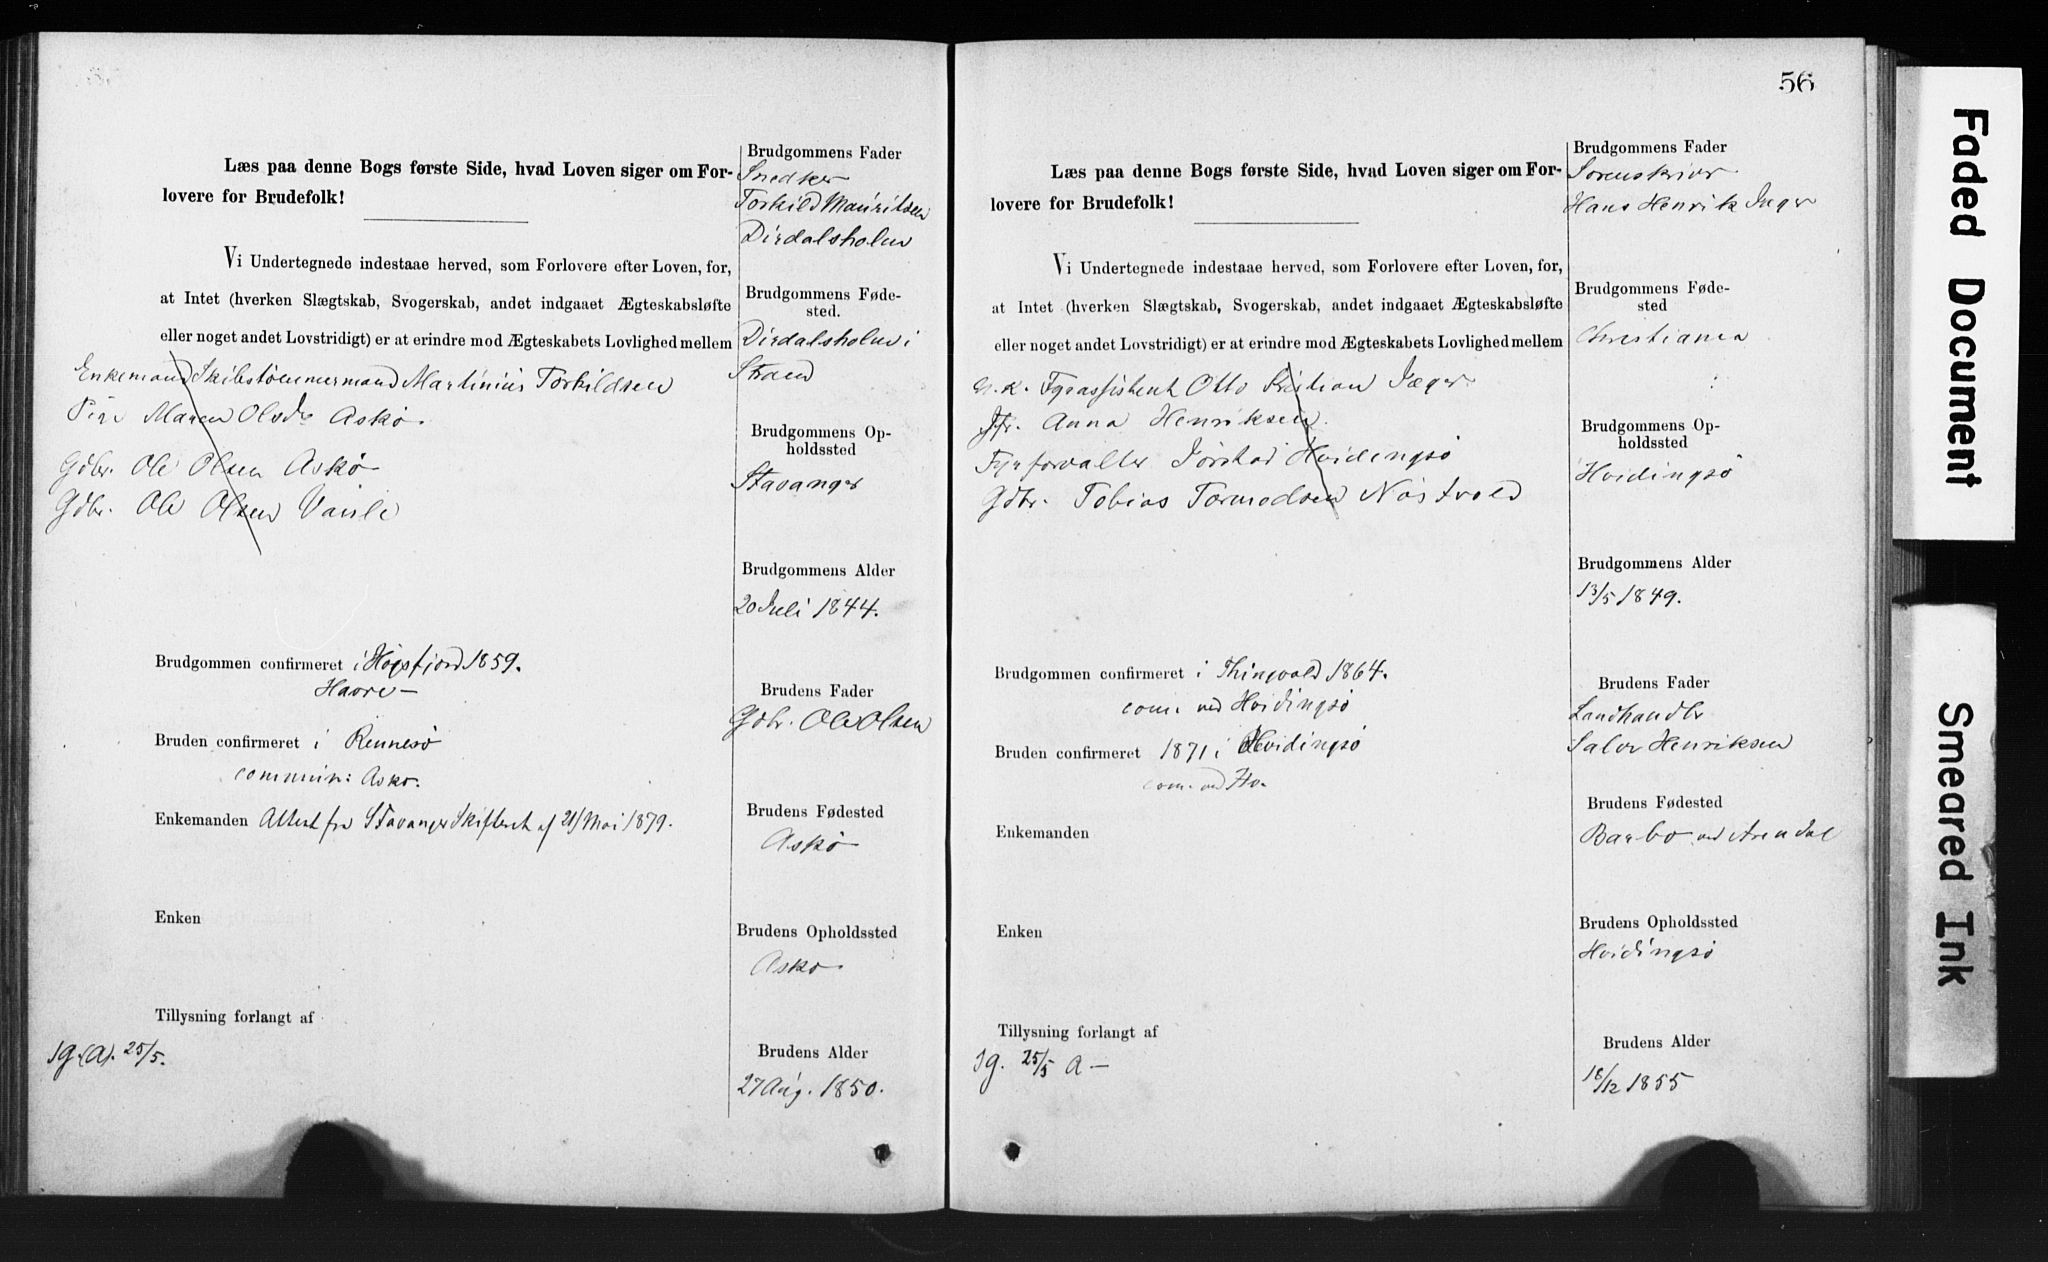 Læs paa denne Bogs første Side, hvad Loven siger om For-
lovere for Brudefolk!
Vi Undertegnede indestaae herved, som Forlovere efter Loven, for,
at Intet (hverken Slægtskab, Svogerskab, andet indgaaet Ægteskabsløfte
eller noget andet Lovstridigt) er at erindre mod Ægteskabets Lovlighed mellem
Enkemand Skibstømmermand Martinius Torkildsen
Pige Maren Olsdr Askø.
Gdbr. Ole Olsen Askø
Gdbr. Ole Olsen Vaule
Brudgommen confirmeret i Høgsfjord 1859.
Havre
Bruden confirmeret i Rennesø
commun: Askø.
Enkemanden Attest fra Stavanger Skifteret af 21/Mai 1879.
Enken
Tillysning forlangt af
1g. (A). 25/5.
Brudgommens Fader
Snedker
Torkild Mauritsen
Dirdalsholm
Brudgommens Føde-
sted.
Dirdalsholm i
Strand
Brudgommens Op-
holdssted
Stavanger
Brudgommens Alder
20 Juli 1844.
Brudens Fader
Gdbr. Ole Olsen
Brudens Fødested
Askø
Brudens Opholdssted
Askø.
Brudens Alder
27 Aug. 1850.
56
Læs paa denne Bogs første Side, hvad Loven siger om For-
lovere for Brudefolk!
Vi Undertegnede indestaae herved, som Forlovere efter Loven, for,
at Intet (hverken Slægtskab, Svogerskab, andet indgaaet Ægteskabsløfte
eller noget andet Lovstridigt) er at erindre mod Ægteskabets Lovlighed mellem
U.K. Fyrassistent Otto Kristian Jæger
Jfr. Anna Henriksen.
Fyrforvalter Jørstad Hvidingsø
Gdbr. Tobias Tormodsen Nøstvold
Brudgommen confirmeret i Thingvold 1864.
com. ved Hvidingsø
Bruden confirmeret 1871 i Hvidingsø
com. ved Hv.
Enkemanden
Enken
Tillysning forlangt af
1g. 25/5 A
Brudgommens Fader
Sorenskriver
Hans Henrik Jæger
Brudgommens Føde-
sted
Christiania
Brudgommens Op-
holdssted
Hvidingsø
Brudgommens Alder
13/5 1849.
Brudens Fader
Landhandler
Salve Henriksen
Brudens Fødested
Barbo ved Arendal
Brudens Opholdssted
Hvidingsø
Brudens Alder
18/12 1855
Faded Document
Smeared Ink